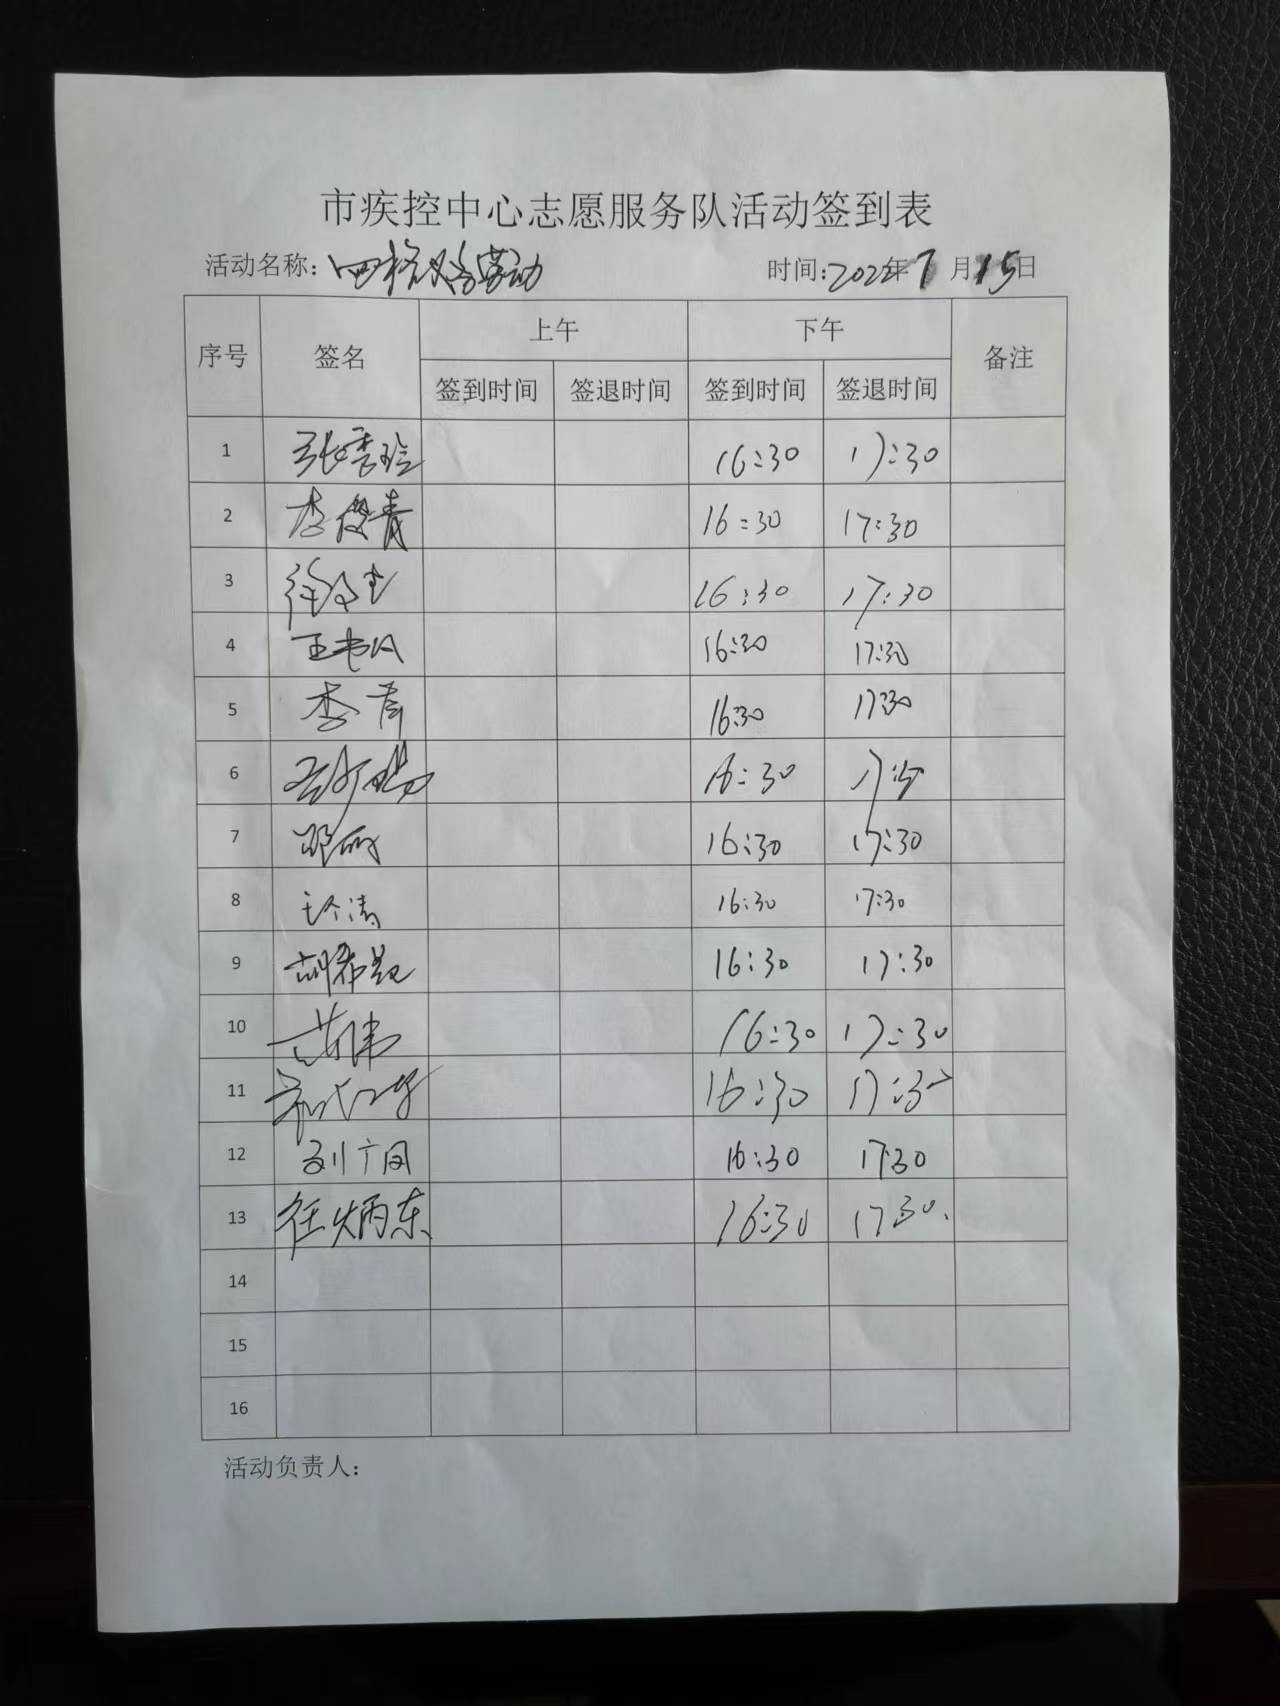 市疾控中心志愿服务队活动签到表
活动名称: 义务劳动 时间:2022年7月15日
序号 签名 上午 下午 备注
签到时间 签退时间 签到时间 签退时间
1 张秀玲 16:30 17:30
2 李俊青 16:30 17:30
3 16:30 17:30
4 16:30 17:30
5 李青 16:30 17:30
6 16:30
7 邓丽 16:30 17:30
8 16:30 17:30
9 胡希 16:30 17:30
10 16:30 17:30
11 16:30 17:30
12 刘广 16:30 17:30
13 任炳东 16:30 17:30
14
15
16
活动负责人: